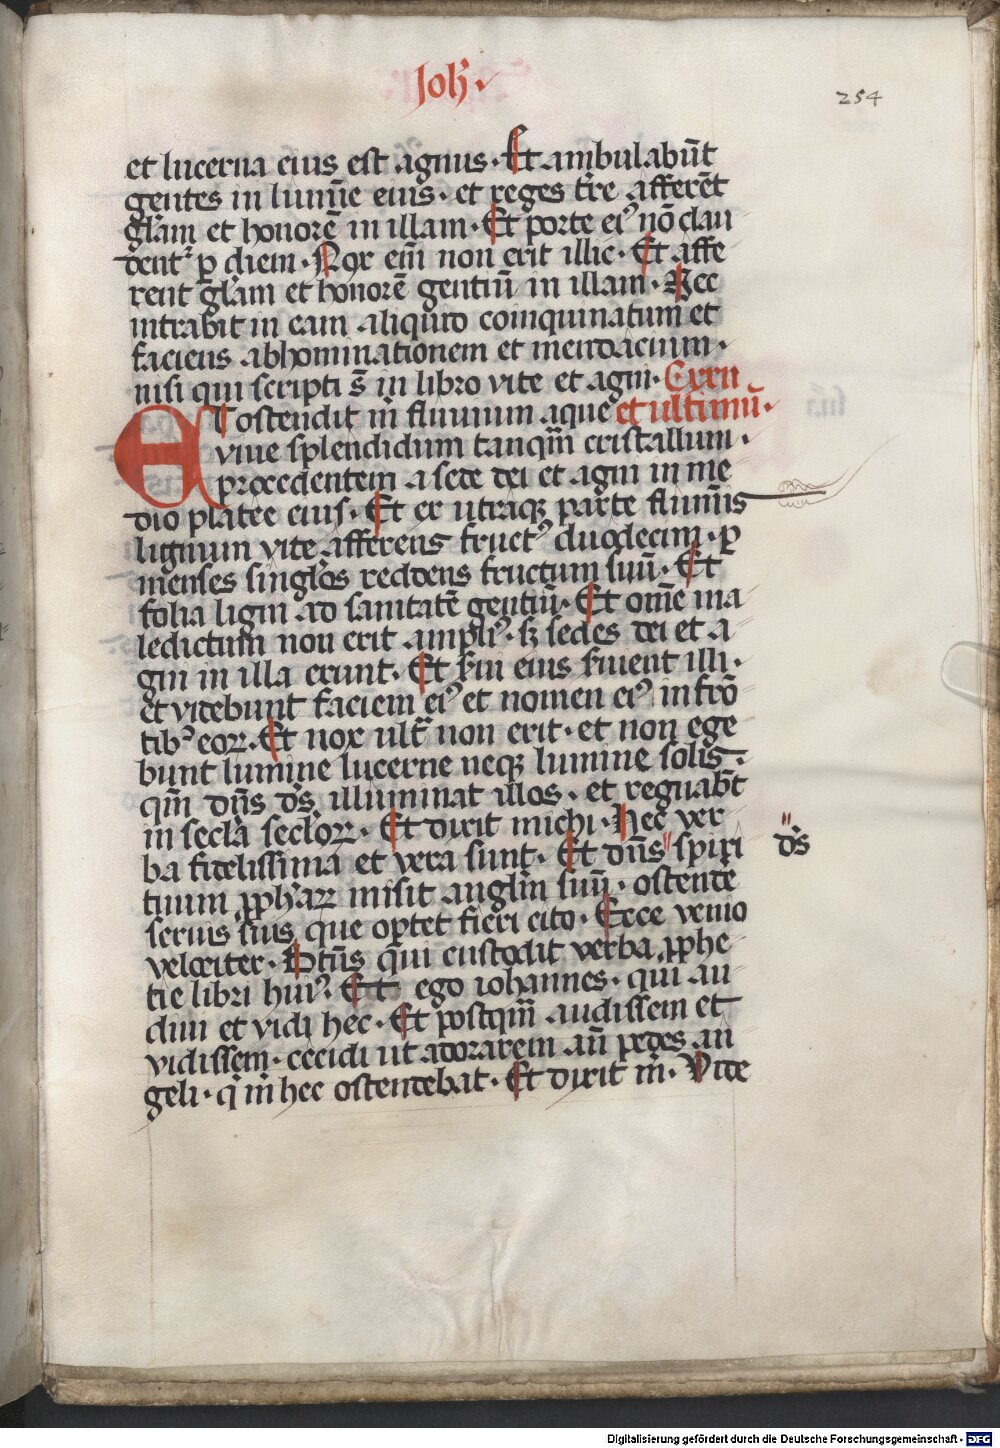 Joh̄.
254
et lucerna eius est agnus. Et ambulabūt
gentes in lumīe eius. et reges t̄re afferēt
gl̄am et honorē in illam. Et porte ei⁹ nō clau
dent᷑ p̲ diem. Nox em̄ non erit illic. Et affe
rent gl̄am et honorē gentiū in illam. Nec
intrabit in eam aliquid coinquinatum et
faciens abhominationem et mendacium.
nisi qui scripti s̄ in libro vite et agni. Cxxii
ET ostendit m̄ fluuium aque et ultimū.
viue splendidum tanqm̄ cristallum.
procedentem a sede dei et agni in me
dio platee eius. Et ex utraqꝫ parte flumīs
lignum vite afferens fruct⁹ duodecim. p̲
menses singl̄os reddens fructum suū. Et
folia ligni ad sanitatē gentiū. Et om̄e ma
ledictum non erit ampli⁹. sꝫ sedes dei et a
gni in illa erunt. Et s̄ui eius s̄uient illi.
et videbunt faciem ei⁹ et nomen ei⁹ in frō
tib⁹ eoꝝ. Et nox ult̄ non erit. et non ege
bunt lumine lucerne neqꝫ lumine solis.
qm̄ dn̄s ds̄ illuminat illos. et regnabt̄
in secl̄a secl̄oꝝ. Et dixit michi. Hec ver
ba fidelissima et vera sunt. Et dn̄s " spiri
" ds̄
tuum ꝓph̄aꝝ misit angl̄m suū. ostende
seruis suis que oportet fieri cito. Ecce venio
velociter. Btūs qui custodit verba ꝓphe
tie libri hui⁹. Et ego iohannes. qui au
diui et vidi hec. Et postqm̄ audissem et
vidissem. cecidi ut adorarem an̄ pedes an
geli. q̄ m̄ hec ostendebat. Et dixit m̄. Vide
Digitalisierung gefördert durch die Deutsche Forschungsgemeinschaft - DFG